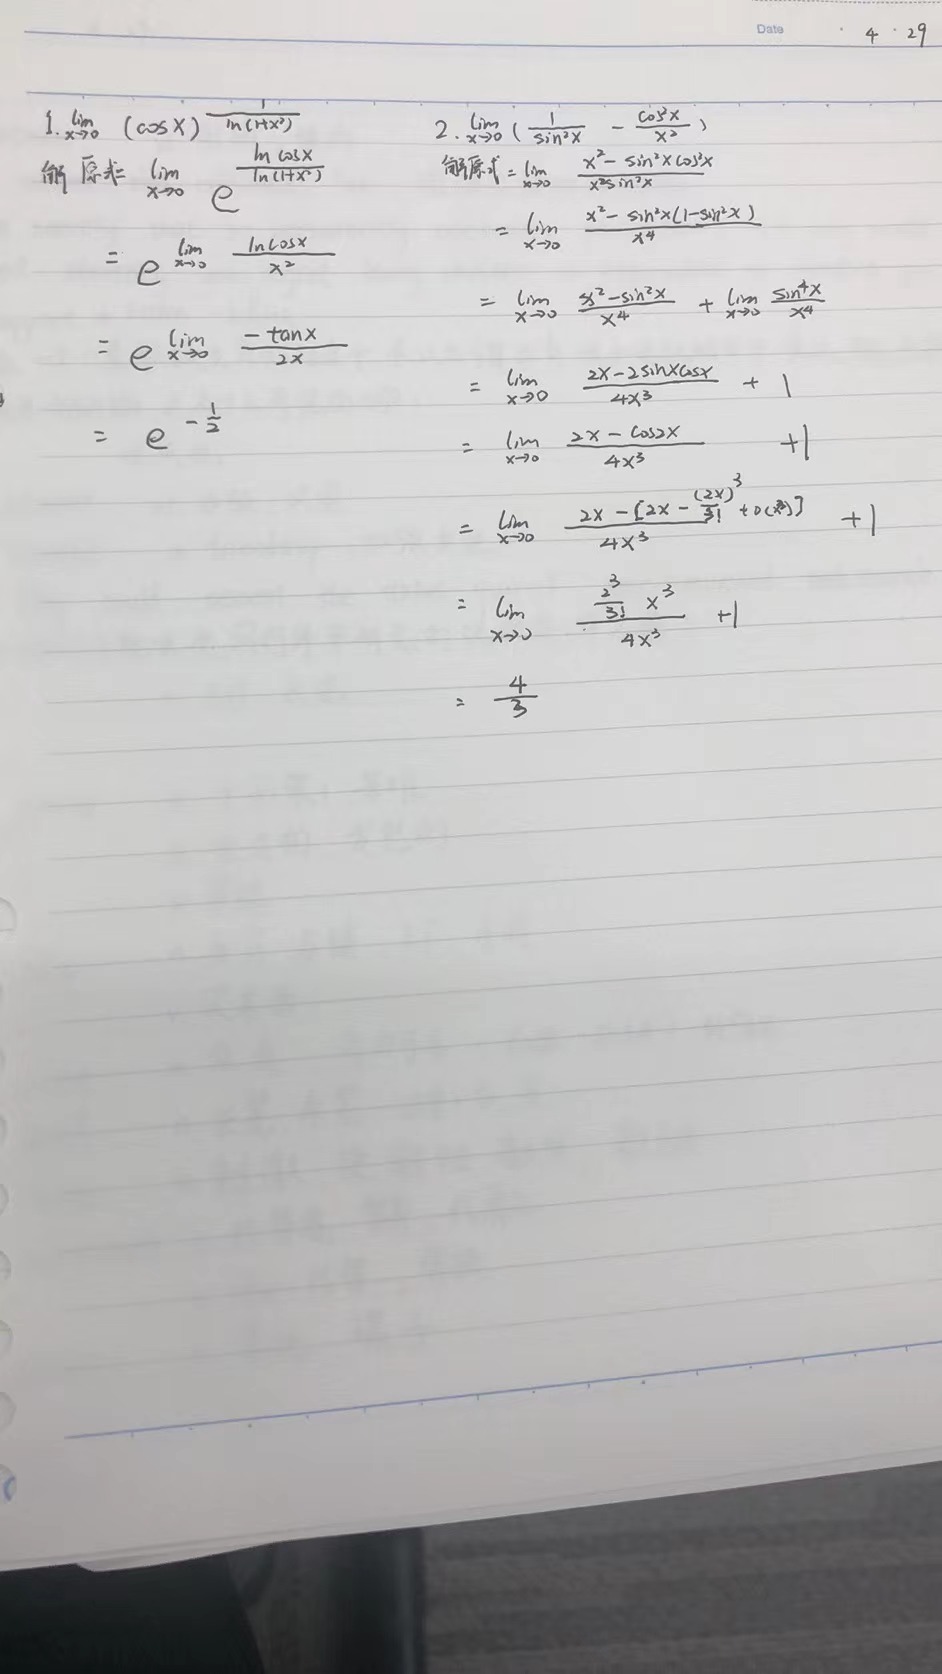 Date 4 · 29
1. lim_{x→0} (cosx)^{1/ln(1+x²)}
解 原式= lim_{x→0} e^{lncosx/ln(1+x²)}
= e^{lim_{x→0} lncosx/x²}
= e^{lim_{x→0} -tanx/2x}
= e^{-1/2}
2. lim_{x→0} (1/sin²x - cos²x/x²)
解原式= lim_{x→0} (x² - sin²xcos²x)/(x²sin²x)
= lim_{x→0} (x² - sin²x(1-sin²x))/x⁴
= lim_{x→0} (x²-sin²x)/x⁴ + lim_{x→0} sin⁴x/x⁴
= lim_{x→0} (2x-2sinxcosx)/4x³ + 1
= lim_{x→0} (2x-cos2x)/4x³ +1
= lim_{x→0} (2x-[2x-(2x)³/3!+o(x³)])/4x³ +1
= lim_{x→0} (2³/3! x³)/4x³ +1
= 4/3